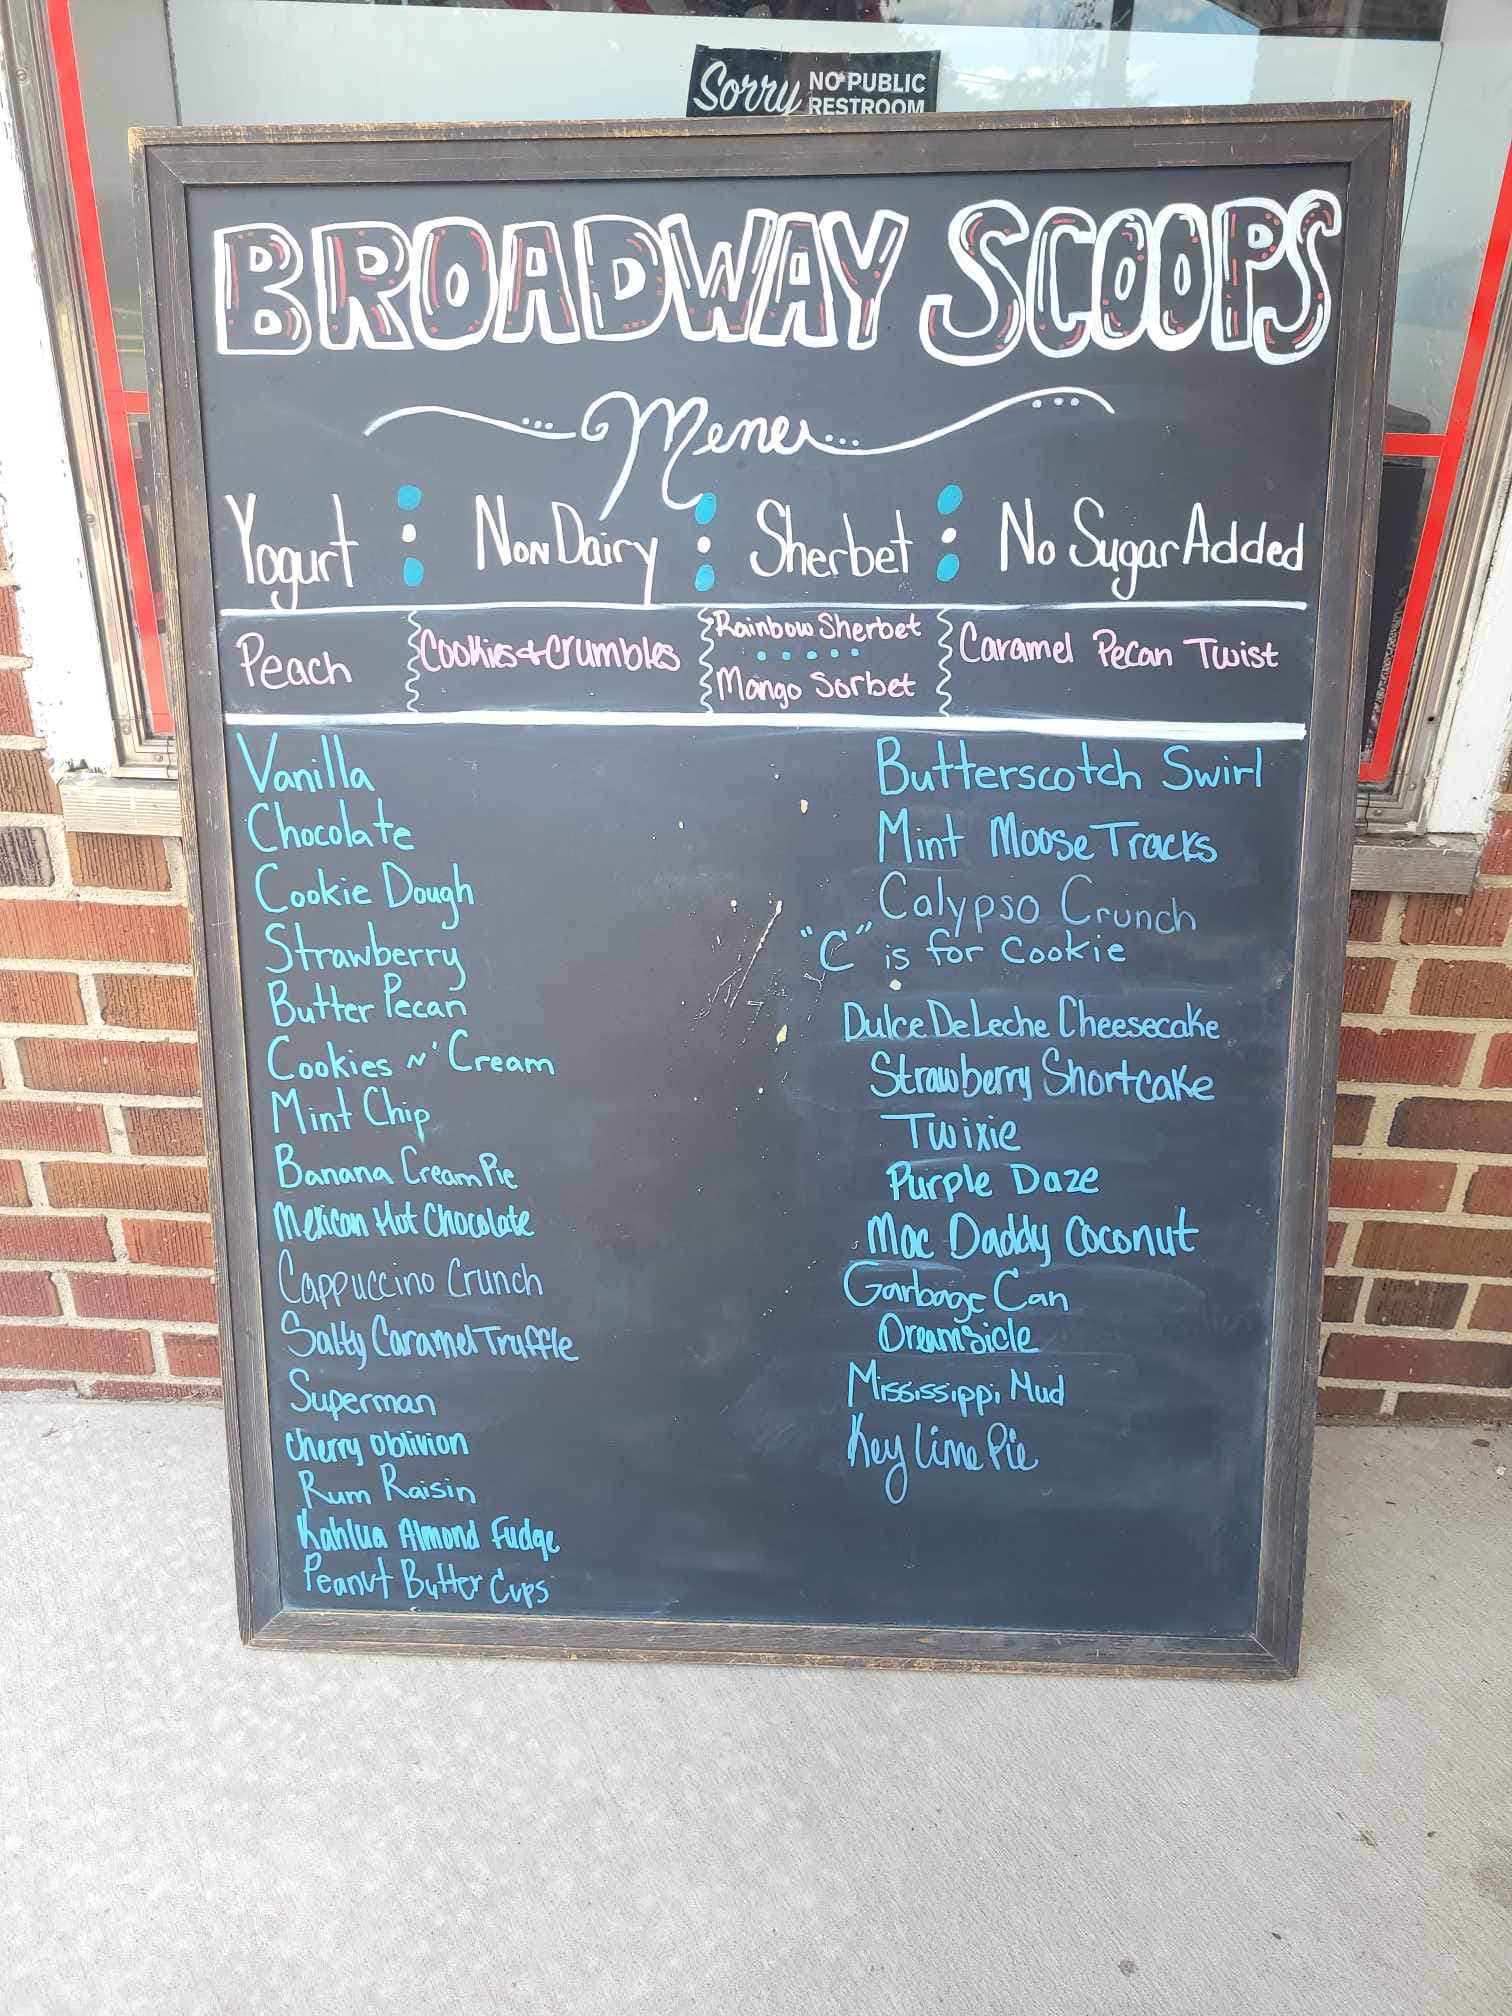 Sorry NO PUBLIC
RESTROOM
BROADWAY SCOOPS
Menu
Yogurt
Non Dairy
Sherbet
No Sugar Added
Peach
Cookies & Crumbles
Rainbow Sherbet
Mango Sorbet
Caramel Pecan Twist
Vanilla
Chocolate
Cookie Dough
Strawberry
Butter Pecan
Cookies N' Cream
Mint Chip
Banana Cream Pie
Mexican Hot Chocolate
Cappuccino Crunch
Salty Caramel Truffle
Superman
Cherry Oblivion
Rum Raisin
Kahlua Almond Fudge
Peanut Butter Cups
Butterscotch Swirl
Mint Moose Tracks
Calypso Crunch
"C" is for Cookie
Dulce De Leche Cheesecake
Strawberry Shortcake
Twixie
Purple Daze
Mac Daddy Coconut
Garbage Can
Dreamsicle
Mississippi Mud
Key Lime Pie